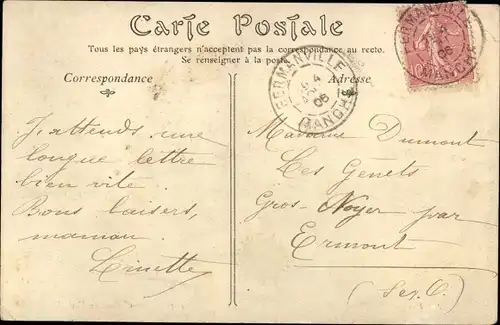 Carte Postale
Tous les pays étrangers n'acceptent pas la correspondance au recto.
Se renseigner à la poste.
Correspondance
Adresse
GERMANVILLE
4
06
MANCHE
GERMANVILLE
06
MANCHE
J'attends une
longue lettre
bien vite.
Bons baisers,
maman.
Linette
Madame Dumont
Les Genêts
Gros-Noyer par
Ermont
(S.et.O.)